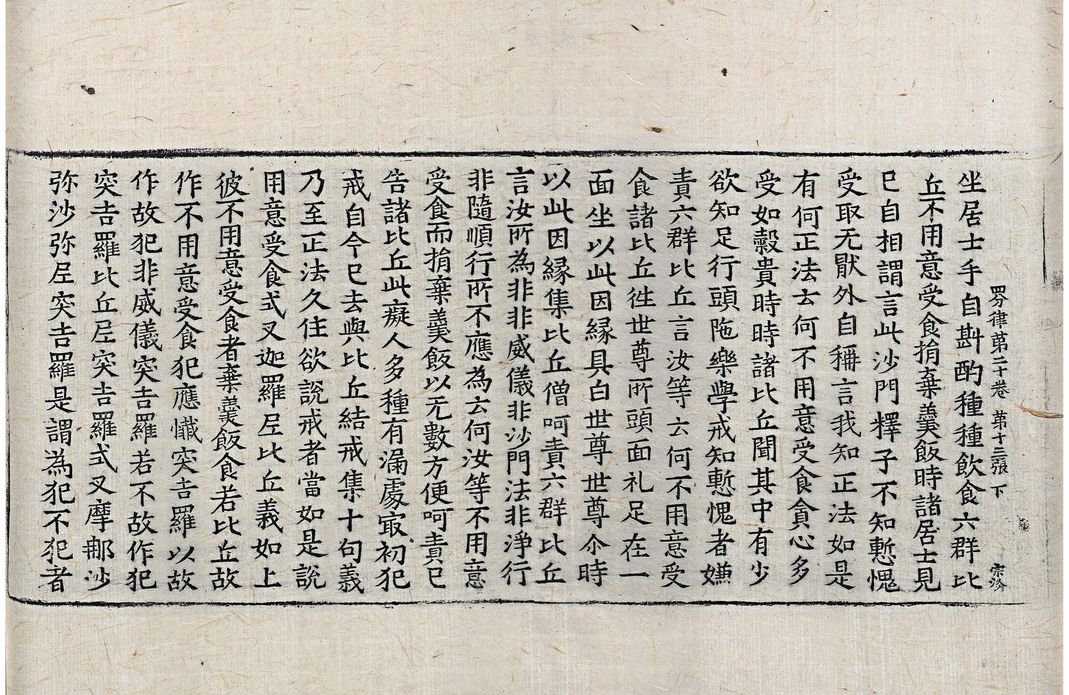 四分律第二十卷 第十三張 下
坐居士手自斟酌種種飲食六群比
丘不用意受食捐棄羹飯時諸居士見
已自相謂言此沙門釋子不知慙愧
受取无猒外自稱言我知正法如是
有何正法云何不用意受食貪心多
受如糓貴時時諸比丘聞其中有少
欲知足行頭陁樂學戒知慙愧者嫌
責六群比丘言汝等云何不用意受
食諸比丘往世尊所頭面礼足在一
面坐以此因縁具白世尊世尊尒時
以此因縁集比丘僧呵責六群比丘
言汝所為非非威儀非沙門法非淨行
非隨順行所不應為云何汝等不用意
受食而捐棄羹飯以无數方便呵責已
告諸比丘此癡人多種有漏處㝡初犯
戒自今已去與比丘結戒集十句義
乃至正法久住欲說戒者當如是說
用意受食式叉迦羅尼比丘義如上
彼不用意受食者棄羹飯食若比丘故
作不用意受食犯應懺突吉羅以故
作故犯非威儀突吉羅若不故作犯
突吉羅比丘尼突吉羅式叉摩那沙
弥沙弥尼突吉羅是謂為犯不犯者